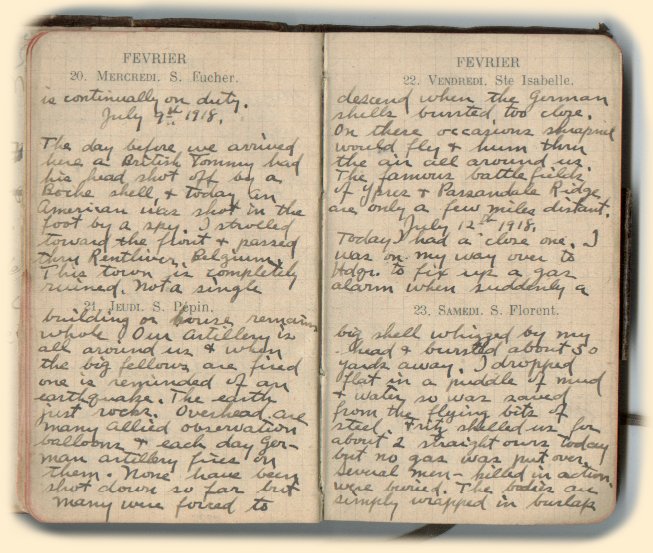 FEVRIER
20. MERCREDI. S. Eucher.
is continually on duty.
July 9th 1918.
The day before we arrived
here a British Tommy had
his head shot off by a
Boche shell, & today an
American was shot in the
foot by a spy. I strolled
toward the front & passed
thru Rentliver, Belgium.
This town is completely
ruined. Not a single
21. JEUDI. S. Pépin.
building or house remains
whole. Our Artillery is
all around us & when
the big fellows are fired
one is reminded of an
earthquake. The earth
just rocks. Overhead are
many allied observation
balloons & each day Ger-
man artillery fires on
them. None have been
shot down so far but
many were forced to
FEVRIER
22. VENDREDI. Ste Isabelle.
descend when the German
shells bursted too close.
On these occasions shrapnel
would fly & hum thru
the air all around us.
The famous battlefields
of Ypres & Passandale Ridge
are only a few miles distant.
July 12th 1918.
Today I had a close one. I
was on my way over to
Hdqr. to fix up a gas
alarm when suddenly a
23. SAMEDI. S. Florent.
big shell whizzed by my
head & bursted about 50
yards away. I dropped
flat in a puddle of mud
& water so was saved
from the flying bits of
steel. Fritz shelled us for
about 2 straight ours today
but no gas was put over.
Several men - killed in action,
were buried. The bodies are
simply wrapped in burlap